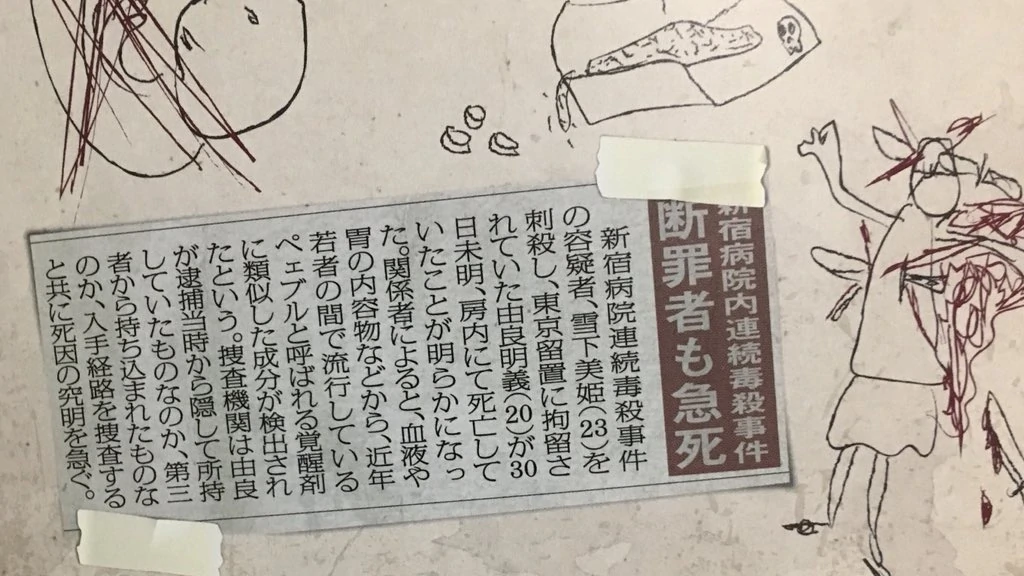 新宿病院内連続毒殺事件
断罪者も急死
新宿病院連続毒殺事件
の容疑者、雪下美姫(23)を
刺殺し、東京留置に拘留さ
れていた由良明義(20)が30
日未明、房内にて死亡して
いたことが明らかになっ
た。関係者によると、血液や
胃の内容物などから、近年
若者の間で流行している
ペェブルと呼ばれる覚醒剤
に類似した成分が検出され
たという。捜査機関は由良
が逮捕当時から隠して所持
していたものなのか、第三
者から持ち込まれたものな
のか、入手経路を捜査する
と共に死因の究明を急ぐ。